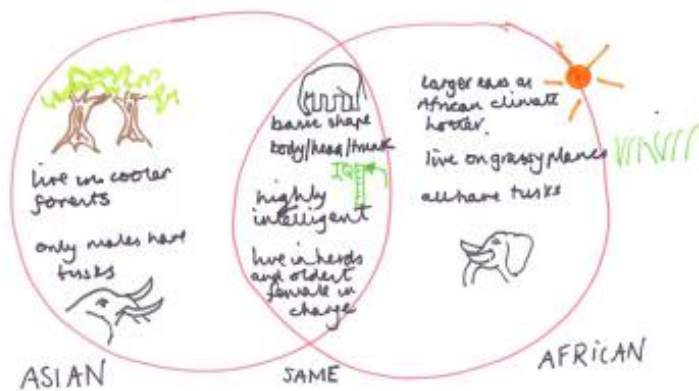 live in cooler
forests
only males have
tusks
ASIAN
basic shape
body/head/trunk
IQ
highly
intelligent
live in herds
and oldest
female in
charge
SAME
larger ears as
African climate
hotter.
live on grassy planes
all have tusks
AFRICAN